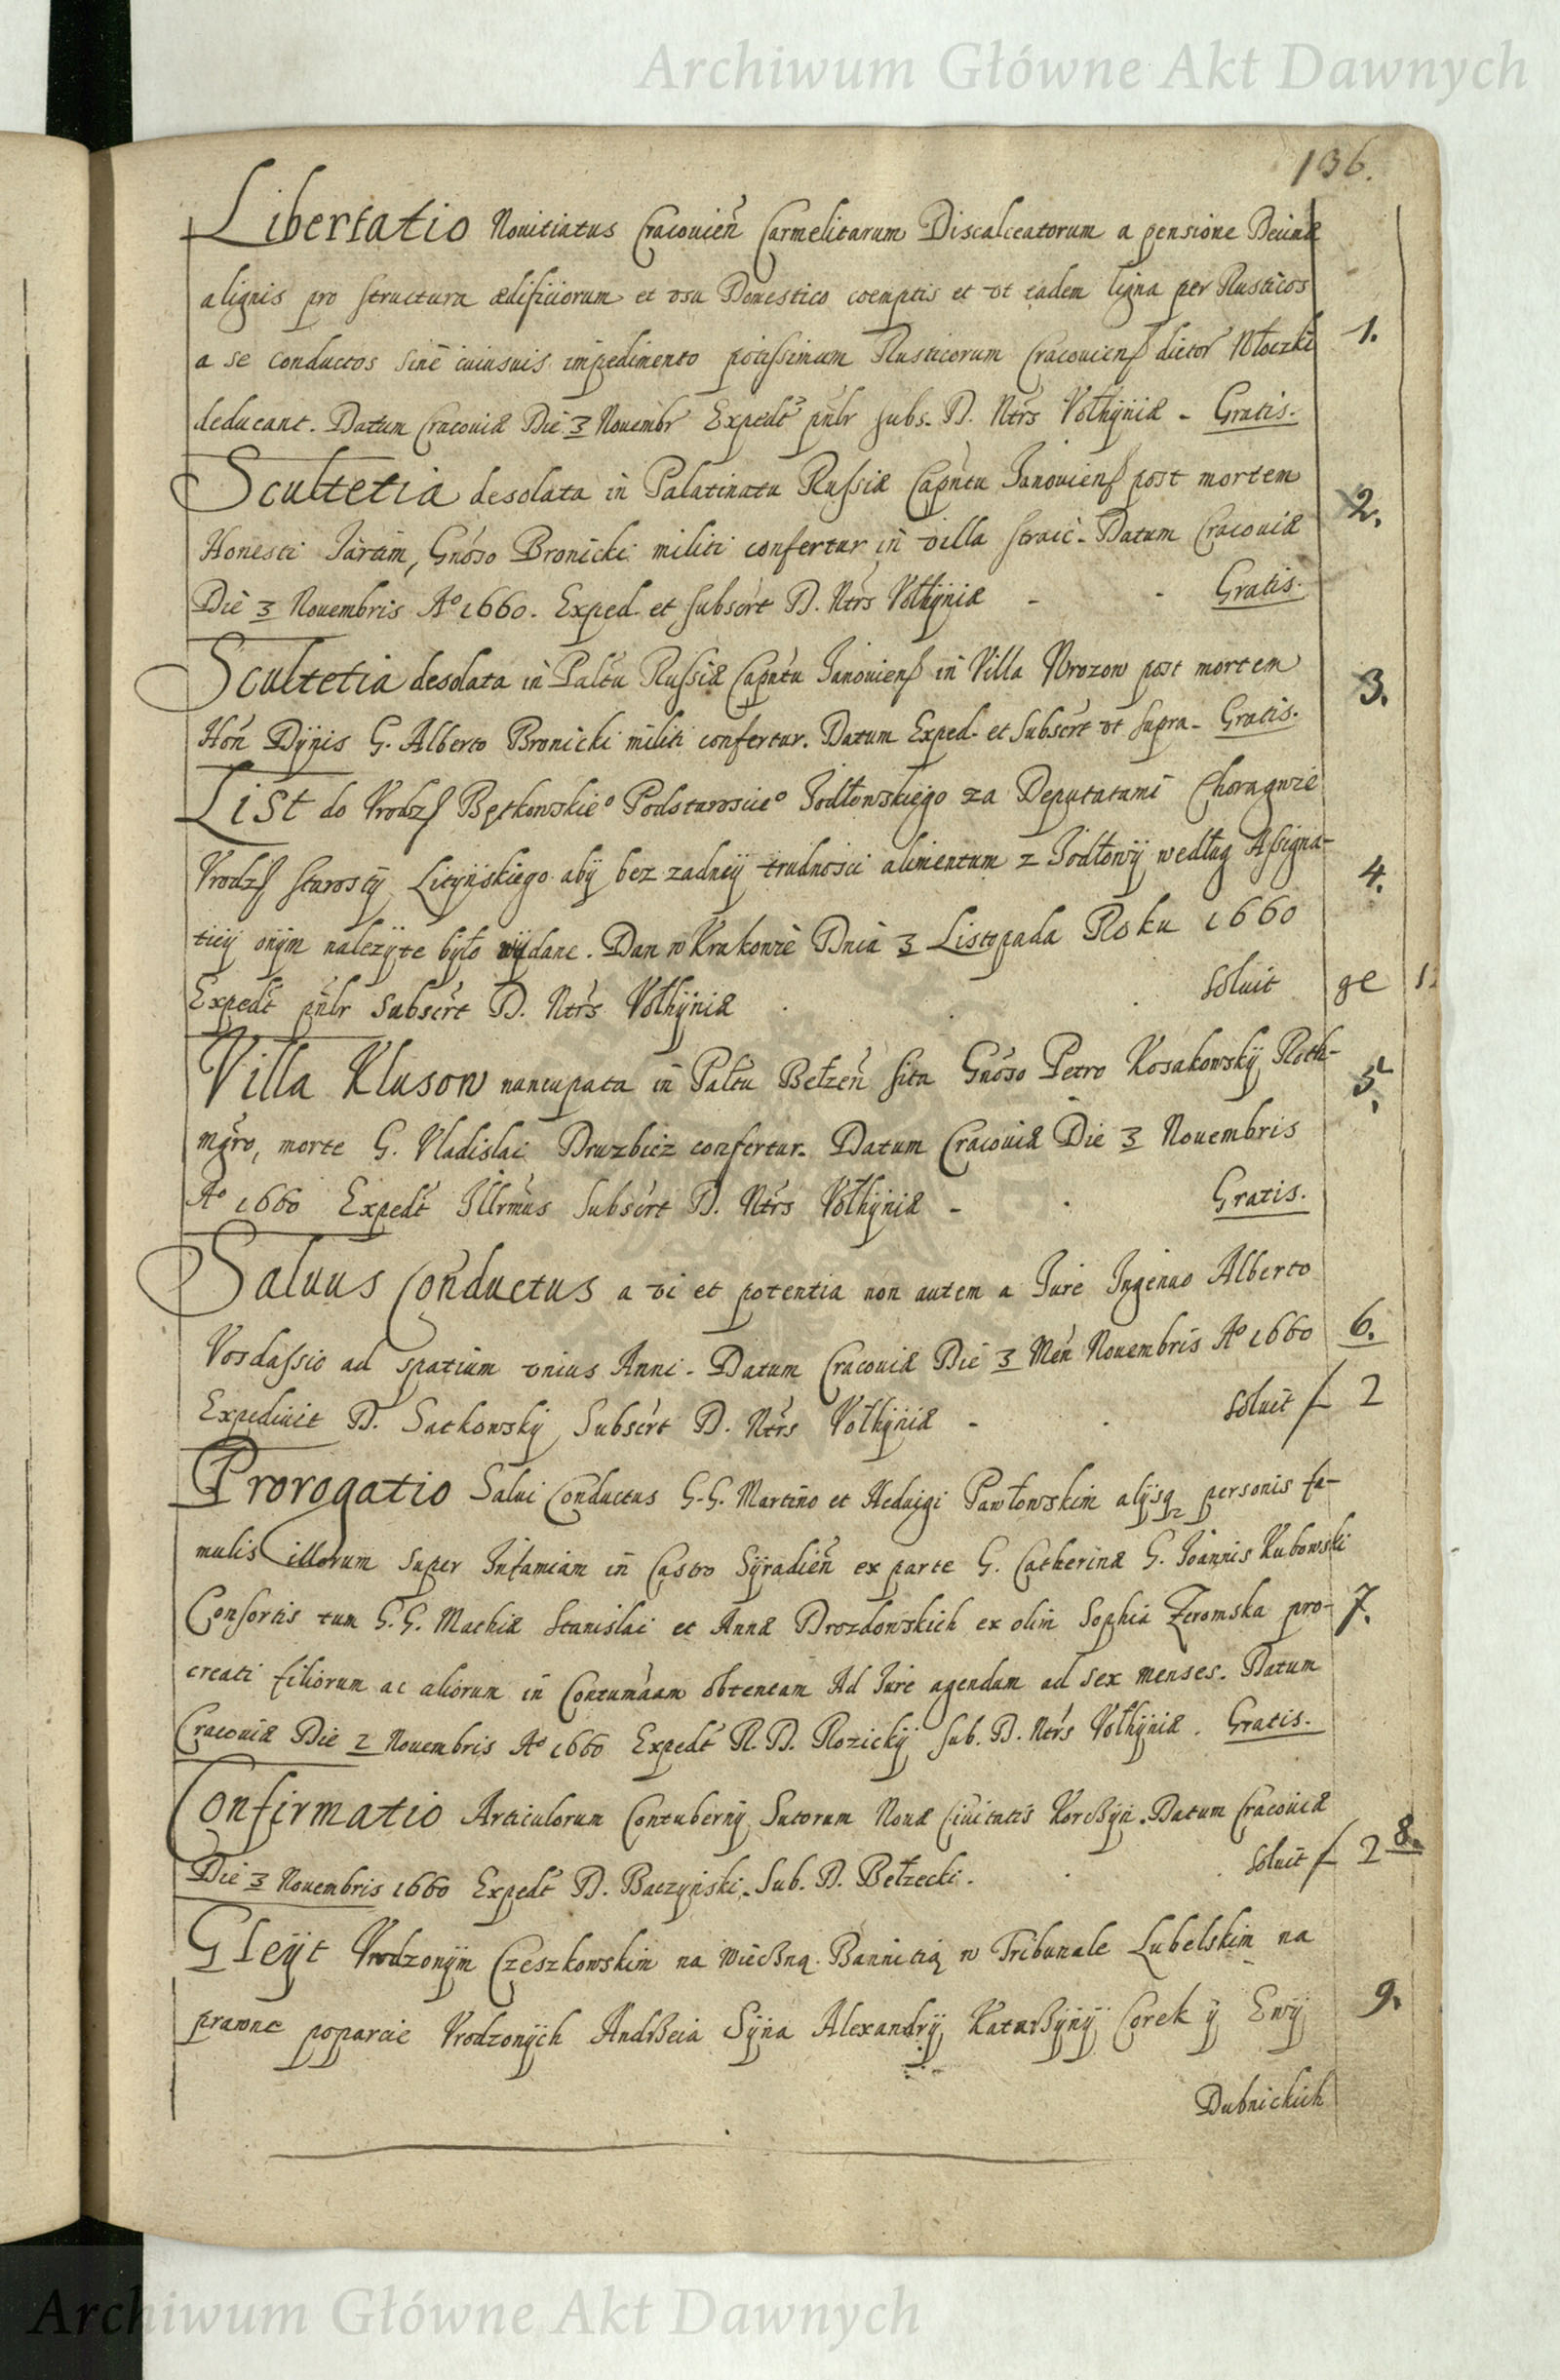 Archiwum Główne Akt Dawnych
136.
Libertatio Nouitiatus Cracouien Carmelitarum Discalceatorum a pensione Decimæ
a lignis pro structura ædificiorum et vsu Domestico coemptis et vt eadem ligna per Rusticos
a se conductos sine cuiusuis impedimento potissimum Rusticorum Cracouiens dictor Włoczki 1.
deducant. Datum Cracouiæ Die 3 Nouembr Expedt pnlr subs. D. Ntrs Vołhyniæ - Gratis.
Scultetia desolata in Palatinatu Russiæ Capntu Janouiens post mortem 2.
Honesti Jartim, Gnoso Bronicki militi confertur in villa Stroic. Datum Cracouiæ
Die 3 Nouembris Aº 1660. Exped. et subscrt D. Ntrs Vołhyniæ - - Gratis.
Scultetia desolata in Paltu Russiæ Capntu Janouiens in Villa Wrozow post mortem 3.
Hon Dynis G. Alberto Bronicki militi confertur. Datum Exped. et Subscrt vt supra. Gratis.
List do Vrodz Bętkowskieº Podstaroscieº Jodłowskiego za Deputatami Chorągwie
Vrodz Starosty Lityńskiego aby bez zadney trudnosci alimentum z Jodłowy według Assigna-
ticy onym nalezyte było wydane. Dan w Krakowie Dnia 3 Listopada Roku 1660 4.
Expedt pnlr Subscrt D. Ntrs Vołhyniæ . . . soluit ge
Villa Kluson nuncupata in Paltu Bełzen sita Gnoso Petro Kosakowsky Roth- 5.
mgro, morte G. Vladislai Druzbicz confertur. Datum Cracouiæ Die 3 Nouembris
Aº 1660 Expedt Illrmus Subscrt D. Ntrs Vołhyniæ - . Gratis.
Saluus Conductus a vi et potentia non autem a Jure Ingenuo Alberto
Vosdassio ad spatium vnius Anni. Datum Cracouiæ Die 3 Men Nouembris Aº 1660 6.
Expediuit D. Satkowsky Subscrt D. Ntrs Vołhyniæ - . soluit f 2
Prorogatio Salui Conductus G.G. Martino et Heduigi Pawłowskim alysq personis fa-
mulis illorum super Infamiam in Castro Syradien ex parte G. Catherinæ G. Joannis Kubowski
Consortis tum G.G. Mathiæ Stanislai et Annæ Drozdowskich ex olim Sophia Zeromska pro- 7.
creati filiorum ac aliorum in Contumaam obtentam Ad Jure agendum ad sex menses. Datum
Cracouiæ Die 2 Nouembris Aº 1660 Expedt R. D. Rozicky sub. D. Ntrs Vołhyniæ. Gratis.
Confirmatio Articulorum Contuberny Sutorum Nouæ Ciuitatis Korcßyn. Datum Cracouiæ
Die 3 Nouembris 1660 Expedt D. Baczynski. Sub. D. Bełzecki. . . soluit f 2 8.
Gleyt Vrodzonym Czeszkowskim na wiecßną Bannitią w Tribunale Lubelskim na
prawne poparcie Vrodzonych Andrßeia Syna Alexandry Katarßyny Corek y Ewy 9.
Dubnickich
Archiwum Główne Akt Dawnych